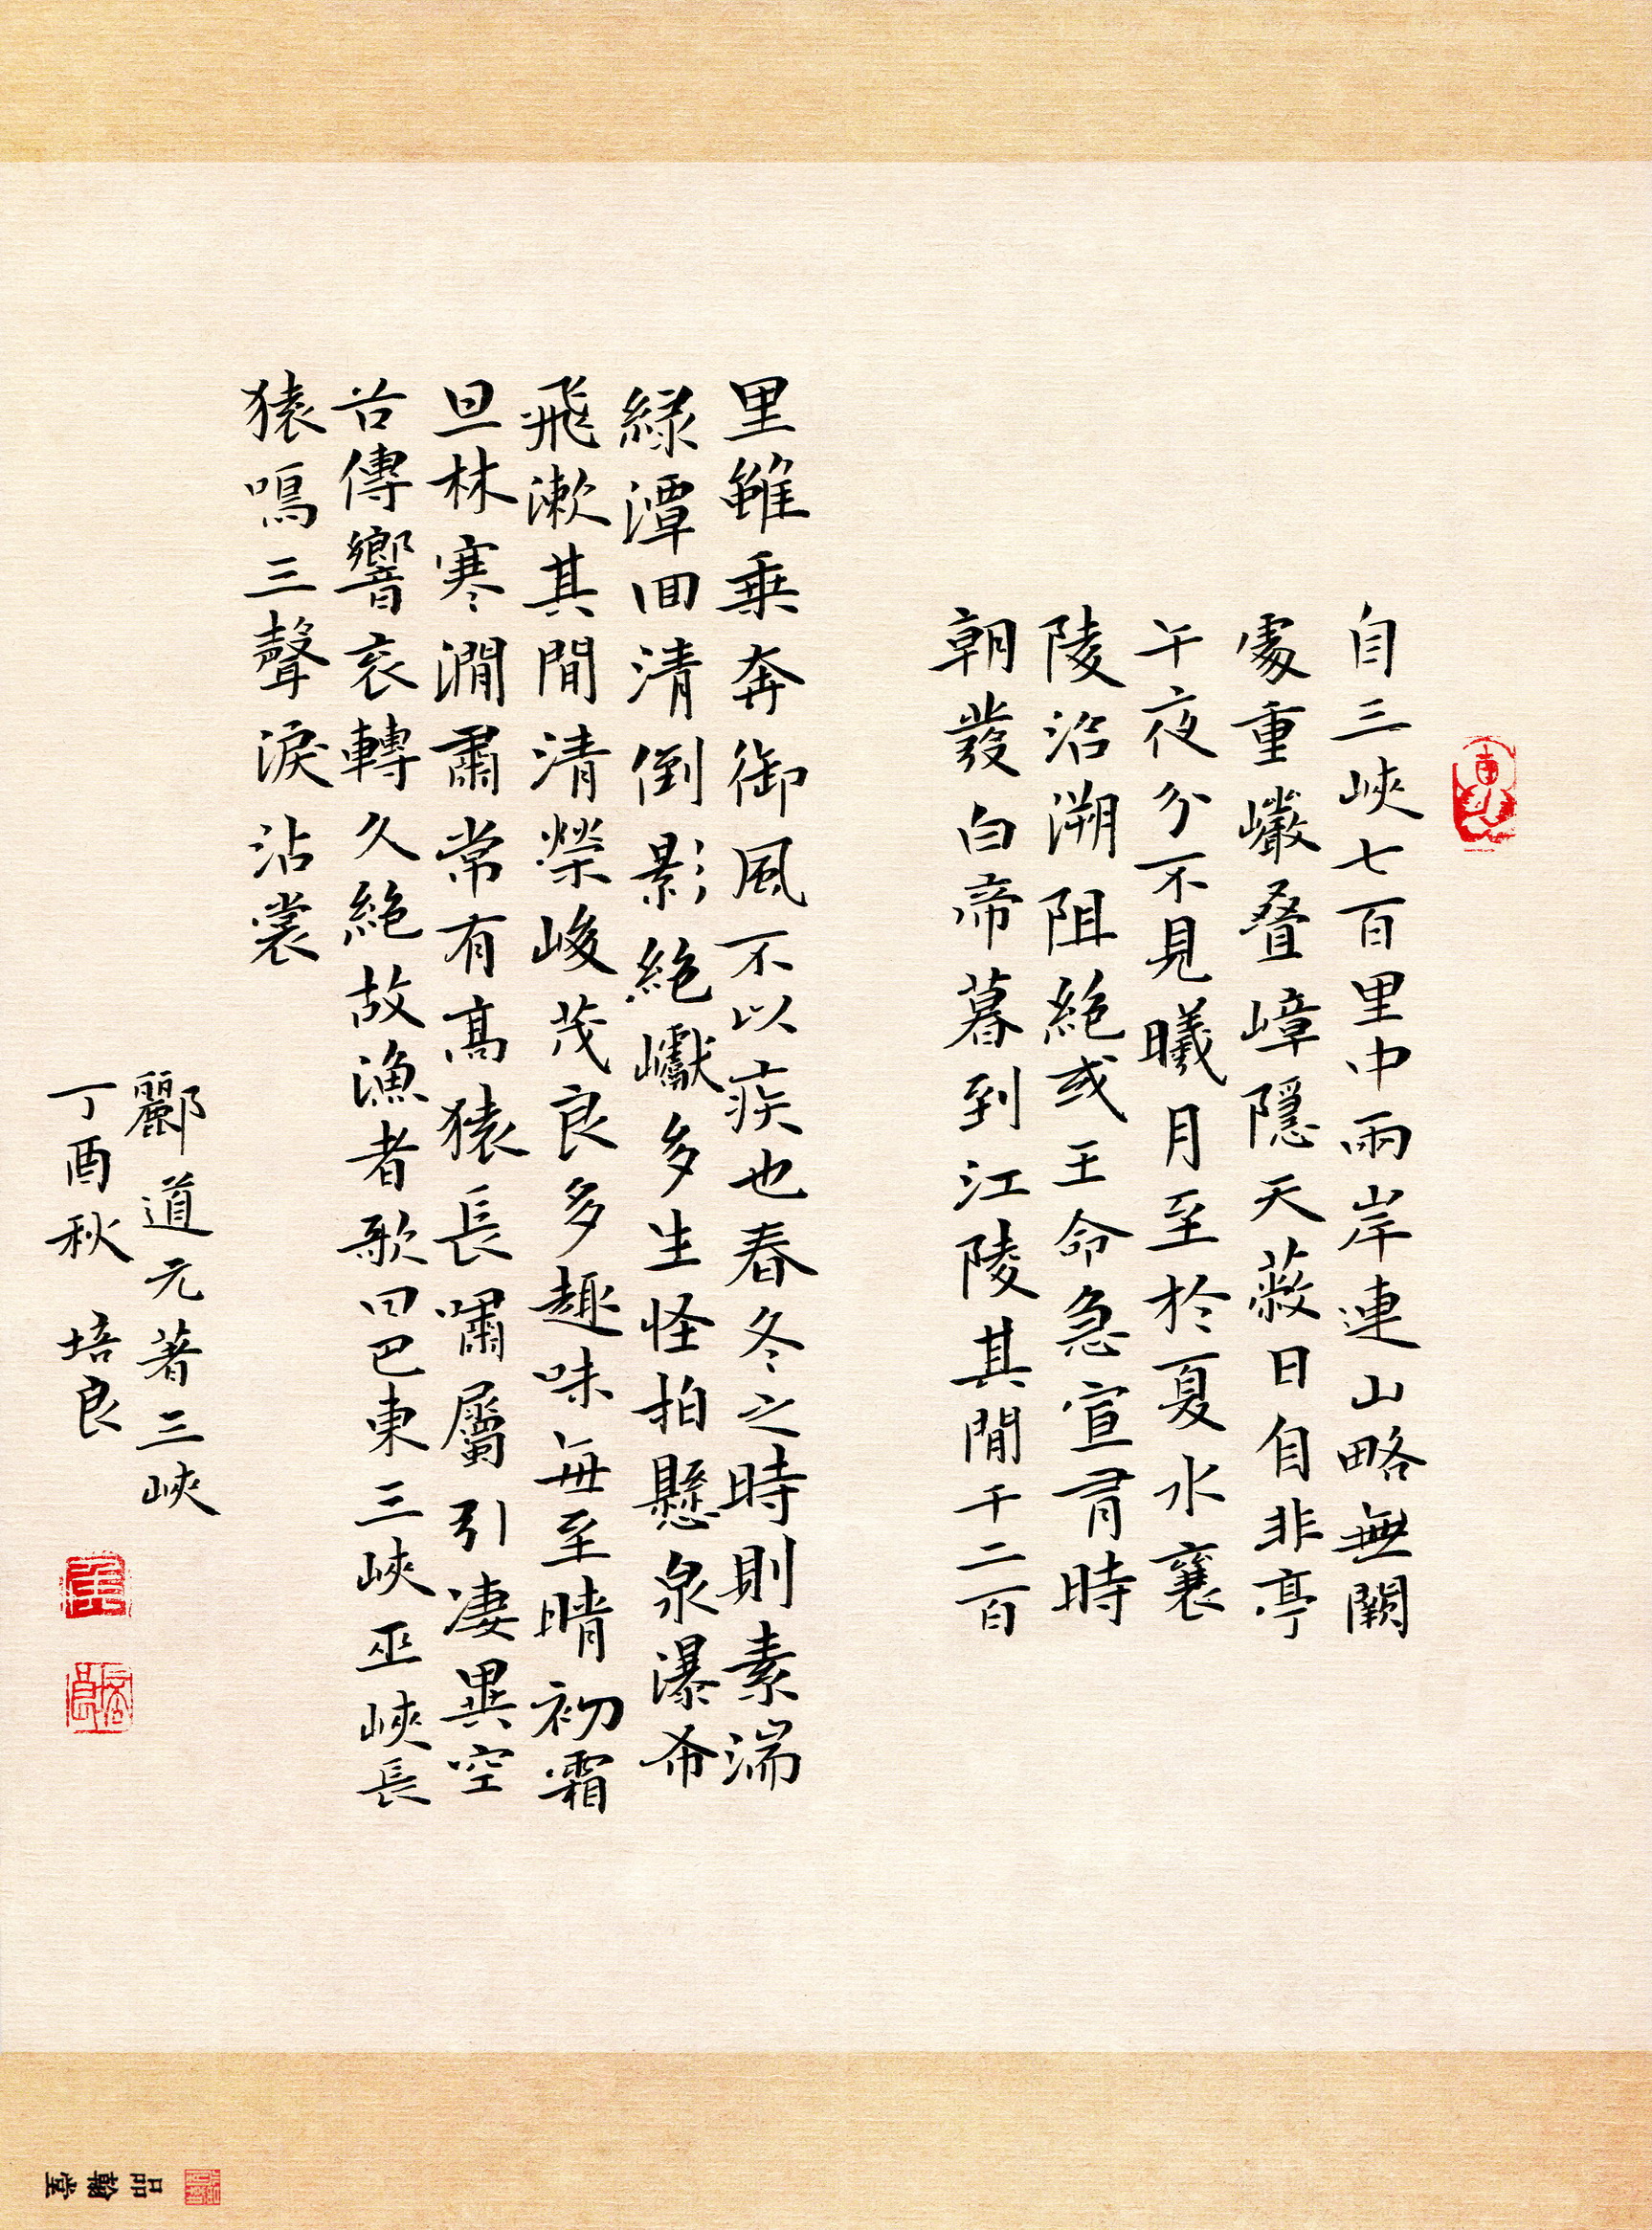 自三峽七百里中兩岸連山略無闕
處重巖叠嶂隱天蔽日自非亭
午夜分不見曦月至於夏水襄
陵沿溯阻絶或王命急宣有時
朝發白帝暮到江陵其間千二百
里雖乗奔御風不以疾也春冬之時則素湍
緑潭回清倒影絶巘多生怪柏懸泉瀑布
飛漱其間清榮峻茂良多趣味每至晴初霜
旦林寒澗肅常有髙猿長嘯屬引淒異空
谷傳響哀轉久絶故漁者歌曰巴東三峽巫峽長
猿鳴三聲淚沾裳
酈道元著三峽
丁酉秋 培良
品翰堂